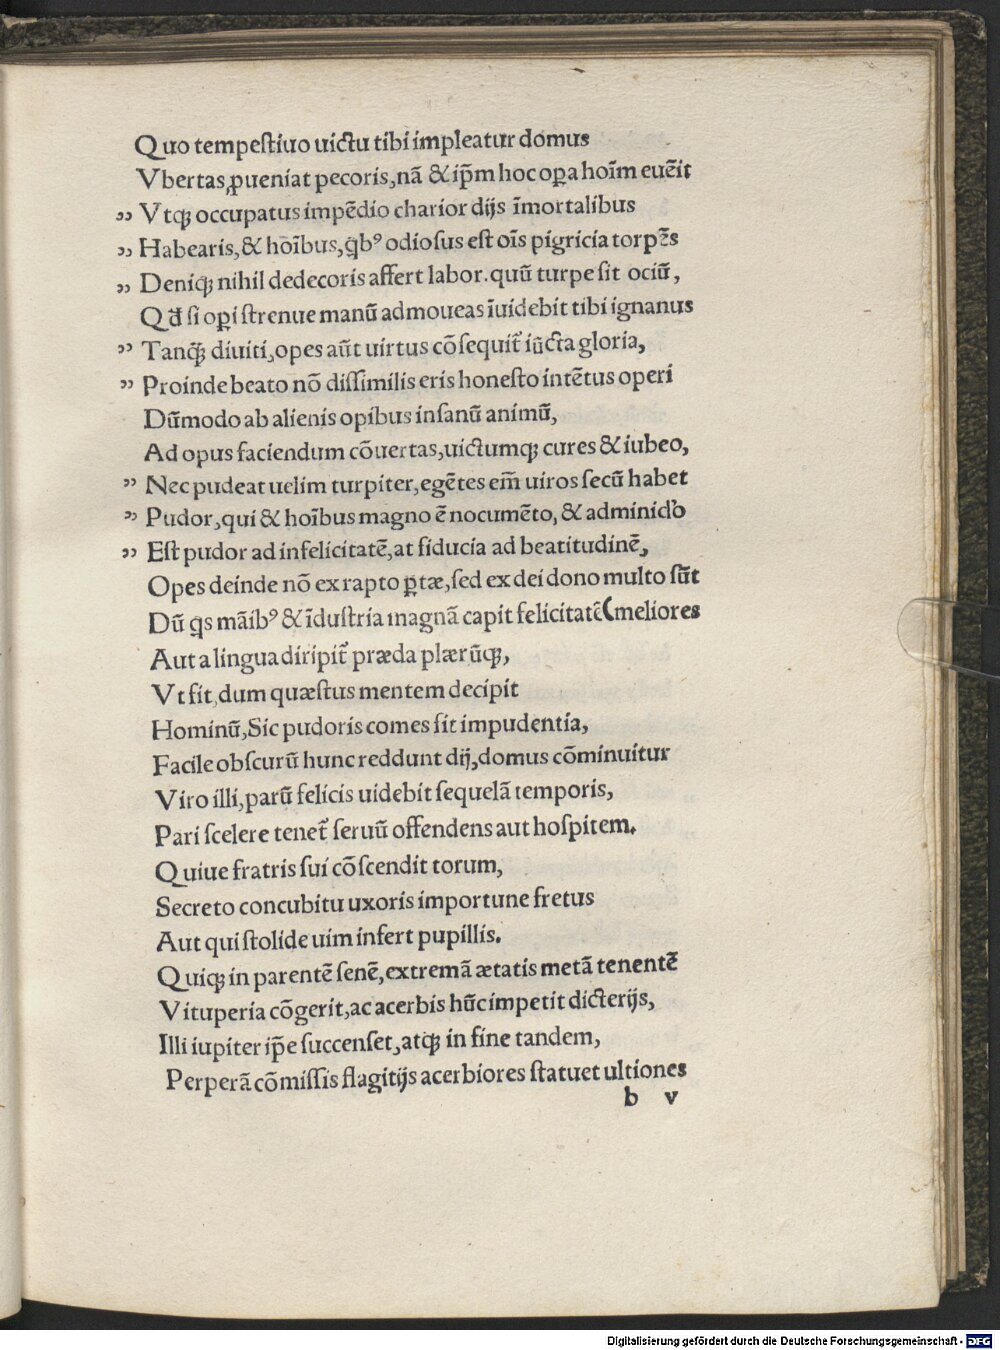 Quo tempeſtiuo uictu tibi impleatur domus
Vbertas, ꝓueniat pecoris, nã & ip̃m hoc oꝑa hoĩm euẽit
„ Vtqꝫ occupatus impẽdio charior dijs ĩmortalibus
„ Habearis, & hoĩbus, qͥbꝰ odioſus eſt oĩs pigricia torpẽs
„ Deniqꝫ nihil dedecoris affert labor. quũ turpe ſit ociũ,
Qđ ſi oꝑi ſtrenue manũ admoueas ĩuidebit tibi ignanus
„ Tanqꝫ̃ diuiti, opes aũt uirtus cõſequit̃ iũcta gloria,
„ Proinde beato nõ diſſimilis eris honeſto intẽtus operi
Dũmodo ab alienis opibus inſanũ animũ,
Ad opus faciendum cõuertas, uictumqꝫ cures & iubeo,
„ Nec pudeat uelim turpiter, egẽtes em̃ uiros ſecũ habet
„ Pudor, qui & hoĩbus magno ẽ nocumẽto, & adminiclo
„ Eſt pudor ad infelicitatẽ, at fiducia ad beatitudinẽ,
Opes deinde nõ ex rapto ꝑtæ, ſed ex dei dono multo ſũt
Dũ qͥs mãibꝰ & ĩduſtria magnã capit felicitatẽ (meliores
Aut a lingua diripit̃ præda plærũqꝫ,
Vt fit, dum quæſtus mentem decipit
Hominũ, Sic pudoris comes ſit impudentia,
Facile obſcurũ hunc reddunt dij, domus cõminuitur
Viro illi, parũ felicis uidebit ſequelã temporis,
Pari ſcelere tenet̃ ſeruũ offendens aut hoſpitem.
Quiue fratris ſui cõſcendit torum,
Secreto concubitu uxoris importune fretus
Aut qui ſtolide uim infert pupillis.
Quiqꝫ in parentẽ ſenẽ, extremã ætatis metã tenentẽ
Vituperia cõgerit, ac acerbis hũc impetit dicterijs,
Illi iupiter ip̃e ſuccenſet, atqꝫ in fine tandem,
Perperã cõmiſſis flagitijs acerbiores ſtatuet ultiones
b v
Digitalisierung gefördert durch die Deutsche Forschungsgemeinschaft - DFG